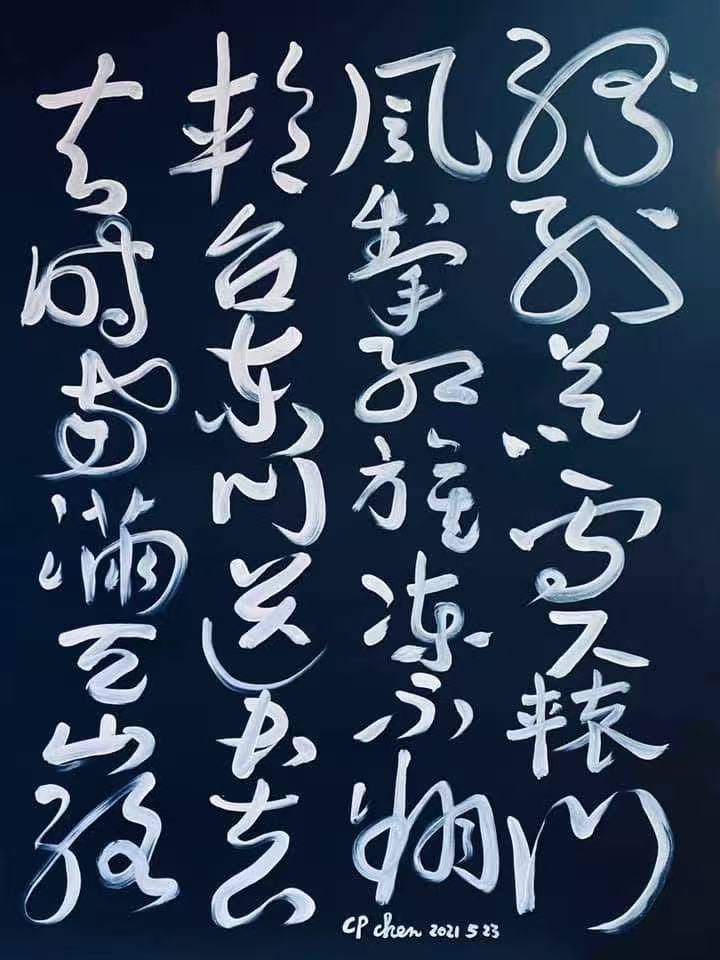 紛紛暮雪下轅門
風掣紅旗凍不翻
輪台東門送君去
去時雪滿天山路
CP chen 2021 5 23